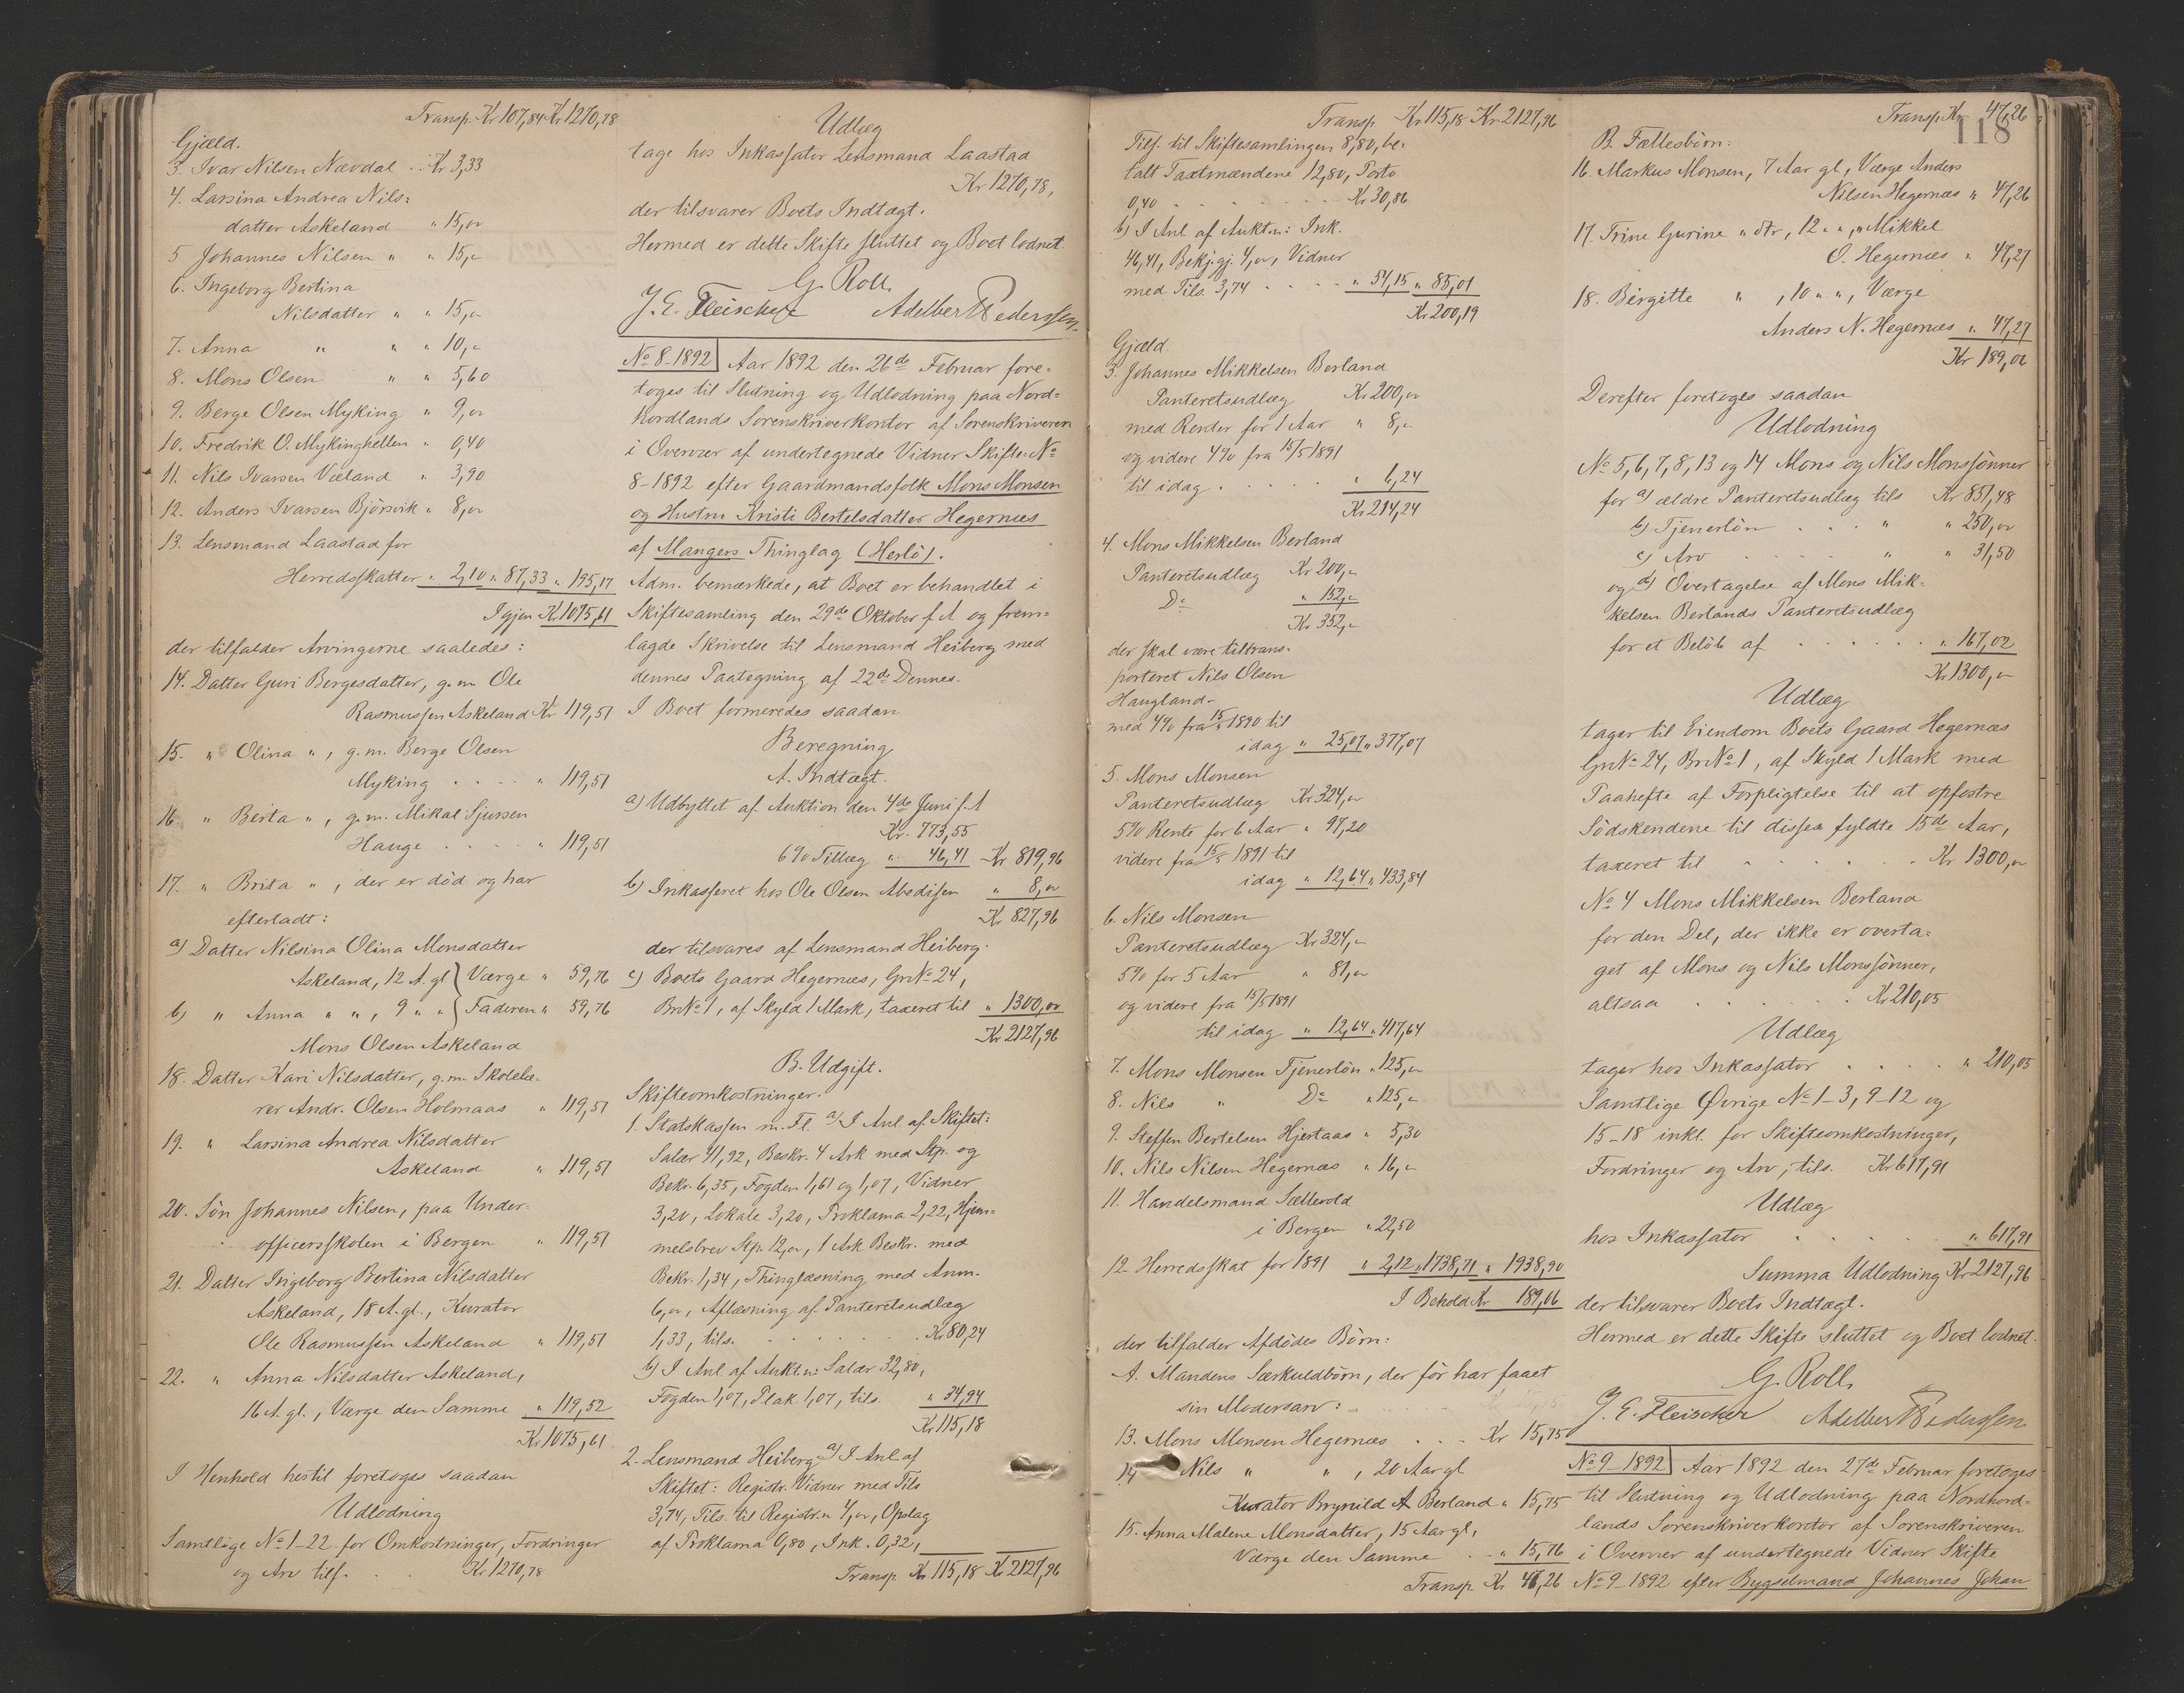 Transp. Kr 107,84 Kr 1270,78
Gjæld.
3. Ivar Nilsen Nævdal .. Kr 3,33
4. Larsina Andrea Nils=
datter Askeland " 15,00
5 Johannes Nilsen " " 15,"
6. Ingeborg Bertina
Nilsdatter " " 15,00
7. Anna " " " 10,"
8. Mons Olsen " " 5,60
9. Berge Olsen Myking " 9,00
10. Fredrik O. Mykinghellen " 0,40
11. Nils Ivarsen Væland " 3,90
12. Anders Ivarsen Bjørsvik " 8,00
13. Lensmand Laastad for
Herredsskatter " 2,10 " 87,33 " 195,17
Igjen Kr 1075,61
der tilfalder Arvingerne saaledes:
14. Datter Guri Bergesdatter, g.m. Ole
Rasmussen Askeland Kr 119,51
15. " Olina ", g.m. Berge Olsen
Myking . . . . " 119,51
16 " Berta ", g.m. Mikal Sjursen
Hauge . . . . " 119,51
17. " Brita ", der er død og har
efterladt:
a) Datter Nilsina Olina Monsdatter
Askeland, 12 A. gl } Værge " 59,76
b) " Anna " ", 9 " " } Faderen " 59,76
Mons Olsen Askeland
18. Datter Kari Nilsdatter, g.m. Skolelæ-
rer Andr. Olsen Holmaas " 119,51
19. " Larsina Andrea Nilsdatter
Askeland " 119,51
20. Søn Johannes Nilsen, paa Under-
officersskolen i Bergen " 119,51
21. Datter Ingeborg Bertina Nilsdatter
Askeland, 18 A. gl., Kurator
Ole Rasmussen Askeland " 119,51
22. " Anna Nilsdatter Askeland,
16 A. gl., Værge den Samme " 119,52
Kr 1075,61
I Henhold hertil foretoges saadan
Udlodning
Samtlige No 1-22 for Omkostninger, Fordringer
og Arv tils. . . Kr 1270,78
Udlæg
tage hos Inkassator Lensmand Laastad
Kr 1270,78,
der tilsvarer Boets Indtægt.
Hermed er dette Skifte sluttet og Boet lodnet.
G. Roll.
J. E. Fleischer Adelbert Pederssen.
No 8-1892 Aar 1892 den 26de Februar fore-
toges til Slutning og Udlodning paa Nord=
hordlands Sorenskriverkontor af Sorenskriveren
i Overvær af undertegnede Vidner Skifte No
8-1892 efter Gaardmandsfolk Mons Monsen
og Hustru Kristi Bertelsdatter Hegernæs
af Mangers Thinglag (Herlø).
Adm. bemærkede, at Boet er behandlet i
Skiftesamling den 29de Oktober f. A og frem=
lagde Skrivelse til Lensmand Heiberg med
dennes Paategning af 22de Dennes.
I Boet formeredes saadan
Beregning
A. Indtægt.
a) Udbyttet af Auktion den 4de Juni f. A
Kr. 773,55
6% Tillæg " 46,41 Kr 819,96
b) Inkasseret hos Ole Olsen Absdisen " 8,00
Kr 827,96
der tilsvares af Lensmand Heiberg.
c) Boets Gaard Hegernæs, Gr No 24,
Br No 1, af Skyld 1 Mark, taxeret til " 1300,00
Kr 2127,96
B. Udgift.
Skifteomkostninger.
1. Statskassen m. Fl. a) I Anl. af Skiftet:
Salær 41,92, Beskr. 4 Ark med Stp. og
Bekr. 6,35, Fogden 1,61 og 1,07, Vidner
3,20, Lokale 3,20, Proklama 2,22, Hjem=
melsbrev Stp. 12,00, 1 Ark Beskr. med
Bekr. 1,34, Thinglæsning med Anm.
6,00, Aflæsning af Panteretsudlæg
1,33, tils. . . . . . . Kr 80,24
b) I Anl. af Aukt.n: Salær 32,80,
Fogden 1,07, Plak. 1,07, tils. " 34,94
Kr 115,18
2. Lensmand Heiberg a) I Anl af
Skiftet: Registr. Vidner med Tils
3,74, Tils. til Registr.n 4,00, Opslag
af Proklama 0,80, Ink. 0,32,
Transp Kr 115,18 Kr 2127,96
Transp Kr 115,18 Kr 2127,96
Tils. til Skiftesamlingen 8,80, be-
talt Taxtmændene 12,80, Porto
0,40 . . . . . . . Kr 30,86
b) I Anl af Aukt.n: Ink.
46,41, Bekj.gj. 4,00, Vidner
med Tils. 3,74 . . . . " 54,15 " 85,01
Kr 200,19
Gjæld
3. Johannes Mikkelsen Berland
Panteretsudlæg Kr 200,00
med Renter for 1 Aar " 8,"
og videre 4% fra 15/5 1891
til idag . . . . . " 6,24
Kr 214,24
4. Mons Mikkelsen Berland
Panteretsudlæg Kr 200,"
Do " 152,"
Kr 352,"
der skal være tiltrans-
porteret Nils Olsen
Haugland-
med 4% fra 15/5 1890 til
idag " 25,07 " 377,07
5. Mons Monsen
Panteretsudlæg Kr 324,00
5% Rente for 6 Aar " 97,20
videre fra 15/5 1891 til
idag " 12,64 " 433,84
6. Nils Monsen
Panteretsudlæg Kr 324,"
5% for 5 Aar " 81,00
og videre fra 15/5 1891
til idag " 12,64 " 417,64
7. Mons Monsen Tjenerløn " 125,"
8. Nils " Do " 125,"
9. Steffen Bertelsen Hjertaas " 5,30
10. Nils Nilsen Hegernæs " 16,"
11. Handelsmand Sellevold
i Bergen " 22,50
12. Herredsskat for 1891 " 2,12 " 1738,71 " 1938,90
I Behold Kr 189,06
der tilfalder Afdødes Børn:
A. Mandens Særkuldbørn, der før har faaet
sin Modersarv:
13. Mons Monsen Hegernæs . . . Kr 15,75
14 Nils " " , 20 Aar gl
Kurator Brynild A Berland " 15,75
15. Anna Malene Monsdatter, 15 Aar gl,
Værge den Samme . . " 15,76
Transp Kr 47,26
Transp. Kr 47,26
118
B. Fællesbørn:
16. Markus Monsen, 7 Aar gl, Værge Anders
Nilsen Hegernæs " 47,26
17. Trine Gurine " dtr, 12 " ", " Mikkel
O. Hegernæs " 47,27
18. Birgitte " , 10 " ", Værge
Anders N. Hegernæs " 47,27
Kr 189,06
Derefter foretoges saadan
Udlodning
No 5, 6, 7, 8, 13 og 14 Mons og Nils Monssønner
for a) ældre Panteretsudlæg tils Kr 851,48
b) Tjenerløn . . . " " 250,00
c) Arv . . . . " " 31,50
og d) Overtagelse af Mons Mik-
kelsen Berlands Panteretsudlæg
for et Beløb af . . . . . . " 167,02
Kr 1300,"
Udlæg
tager til Eiendom Boets Gaard Hegernæs
Gr No 24, Br No 1, af Skyld 1 Mark med
Paahefte af Forpligtelse til at opfostre
Sødskendene til disses fyldte 15de Aar,
taxeret til . . . . . . Kr 1300,00
No 4 Mons Mikkelsen Berland
for den Del, der ikke er overta=
get af Mons og Nils Monssønner,
altsaa . . . . . . Kr 210,05
Udlæg
tager hos Inkassator . . . . " 210,05
Samtlige Øvrige No 1-3, 9-12 og
15-18 inkl. for Skifteomkostninger,
Fordringer og Arv, tils. Kr 617,91
Udlæg
hos Inkassator . . . . . " 617,91
Summa Udlodning Kr 2127,96
der tilsvarer Boets Indtægt.
Hermed er dette Skifte sluttet og Boet lodnet.
G. Roll.
J. E. Fleischer Adelbert Pederssen
No 9-1892 Aar 1892 den 27de Februar foretoges
til Slutning og Udlodning paa Nordhord-
lands Sorenskriverkontor af Sorenskriveren
i Overvær af undertegnede Vidner Skifte
No 9-1892 efter Bygselmand Johannes Johan